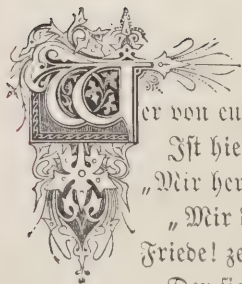 Wer von eu
Ist hie
„Mir her
„Mir i
Friede! ze